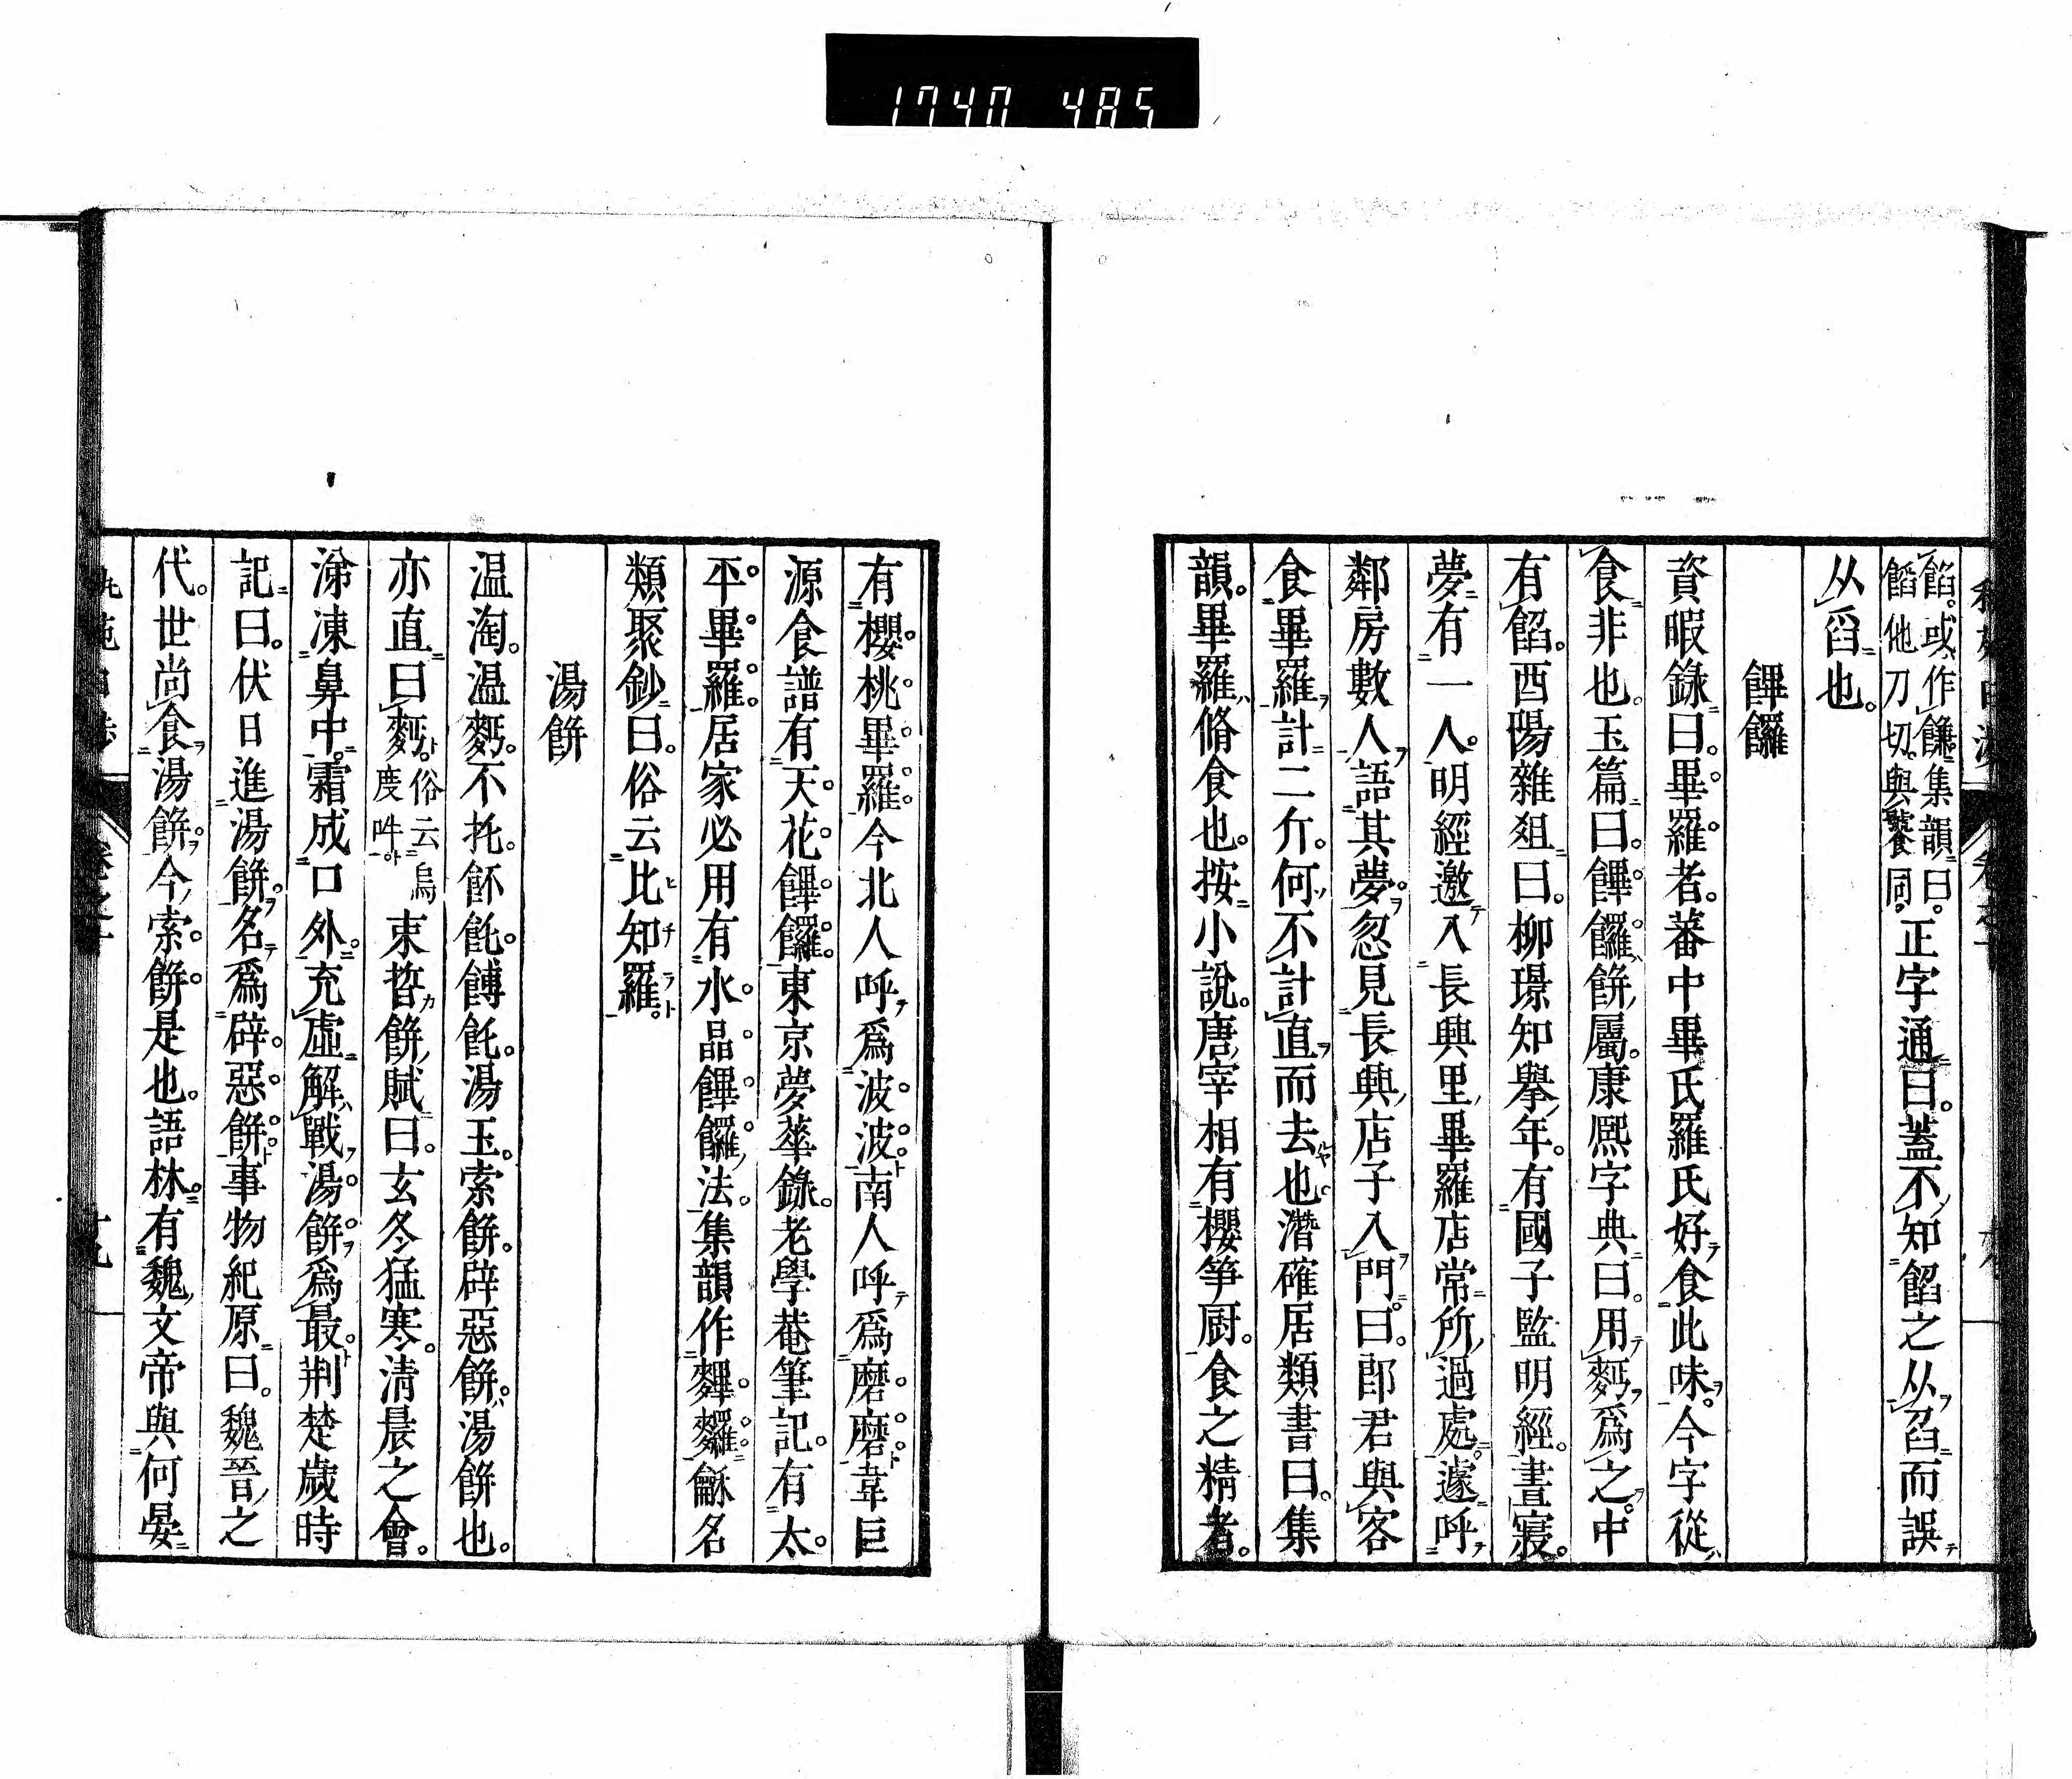 1740 485
餡。或作䭑集韻曰。
饀他刀切。與饕同。正字通曰。蓋不知餡之从臽而誤
从舀也。
饆饠
資暇錄曰。畢羅者。蕃中畢氏羅氏好食此味。今字從
食非也。玉篇曰。饆饠餅屬。康熙字典曰。用麪爲之。中
有餡。酉陽雜俎曰。柳璟知擧年。有國子監明經。晝寢。
夢有一人。明經邀入長興里畢羅店常所過處。遂呼
鄰房數人語其夢。忽見長興店子入門。曰。郎君與客
食畢羅計二斤。何不計直而去也。潛確居類書曰。集
韻。畢羅脩食也。按小說。唐宰相有櫻笋厨。食之精者。
有櫻桃畢羅。今北人呼爲波波。南人呼爲磨磨。韋巨
源食譜有天花饆饠。東京夢華錄。老學菴筆記。有太
平畢羅。居家必用有水晶饆饠法。集韻作䴶䵇龢名
類聚鈔曰。俗云比知羅。
湯餅
温淘。温麪。不托。䬩飥。餺飥。湯玉。索餅。辟惡餅。湯餅也。
亦直曰麪。俗云烏
度吽束晳餅賦曰。玄冬猛寒。清晨之會。
涕凍鼻中。霜成口外。充虛解戰。湯餅爲最。荆楚歲時
記曰。伏日進湯餅。名爲辟惡餅。事物紀原曰。魏晉之
代。世尚食湯餅。今索餅是也。語林。有魏文帝與何晏